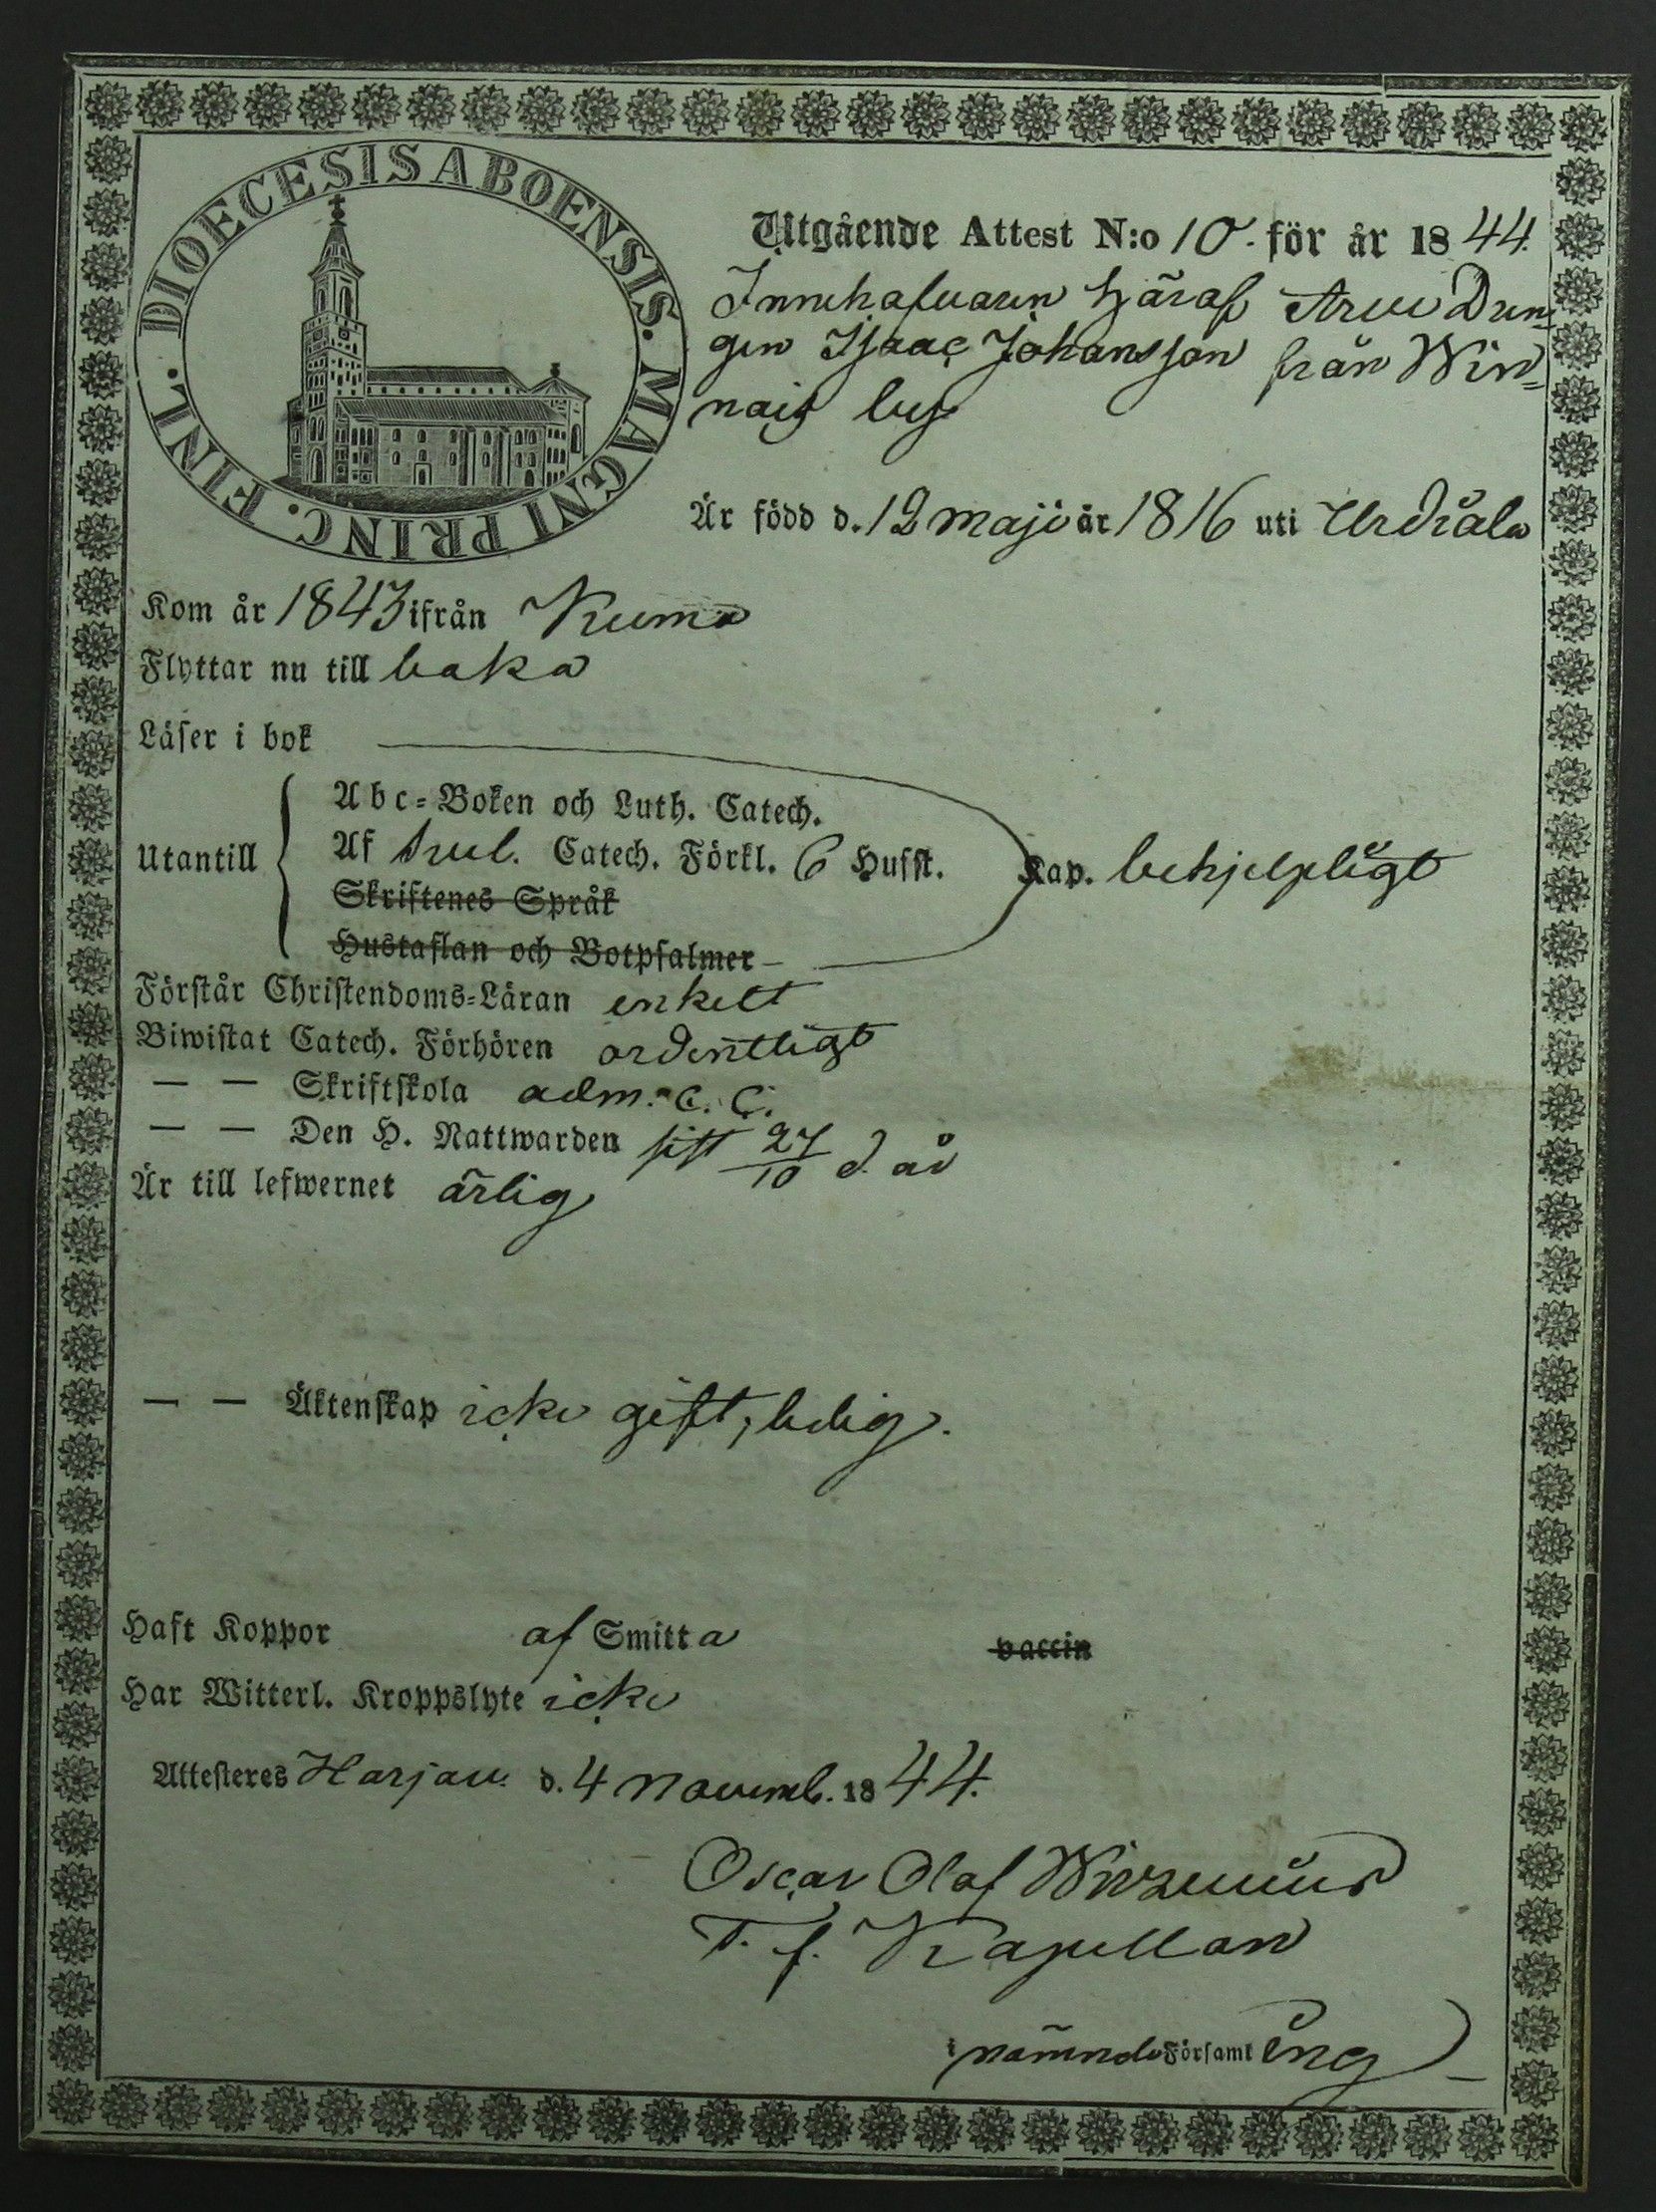 DIOECESIS ABOENSIS. MAGNI PRINC. FINL.
Utgående Attest N:o 10. för år 1844.
Innehafvaren häraf Drän-
gen Isaac Johansson från Win-
nais by
Är född d. 12 maji år 1816 uti Urdiala
Kom år 1843 ifrån Kumo
Flyttar nu till baka
Läser i bok
Abc-Boken och Luth. Catech.
Utantill Af Catech. Förkl. 6 Husst. Kap. behjelpligt
Skriftenes Språk
Hustaflan och Botpsalmer
Förstår Christendoms-Läran enkelt
Biwistat Catech. Förhören ordentligt
— — Skriftskola adm. C. C.
— — Den H. Nattwarden sist 27/10 d. år
Är till lefwernet ärlig
— — Äktenskap icke gift, ledig.
Haft Koppor af Smitta vaccin
Har Witterl. Kroppslyte icke
Attesteres Harjav. d. 4 Novemb. 1844.
Oscar Olaf
T. f. Kapellan
i nämnde Församling